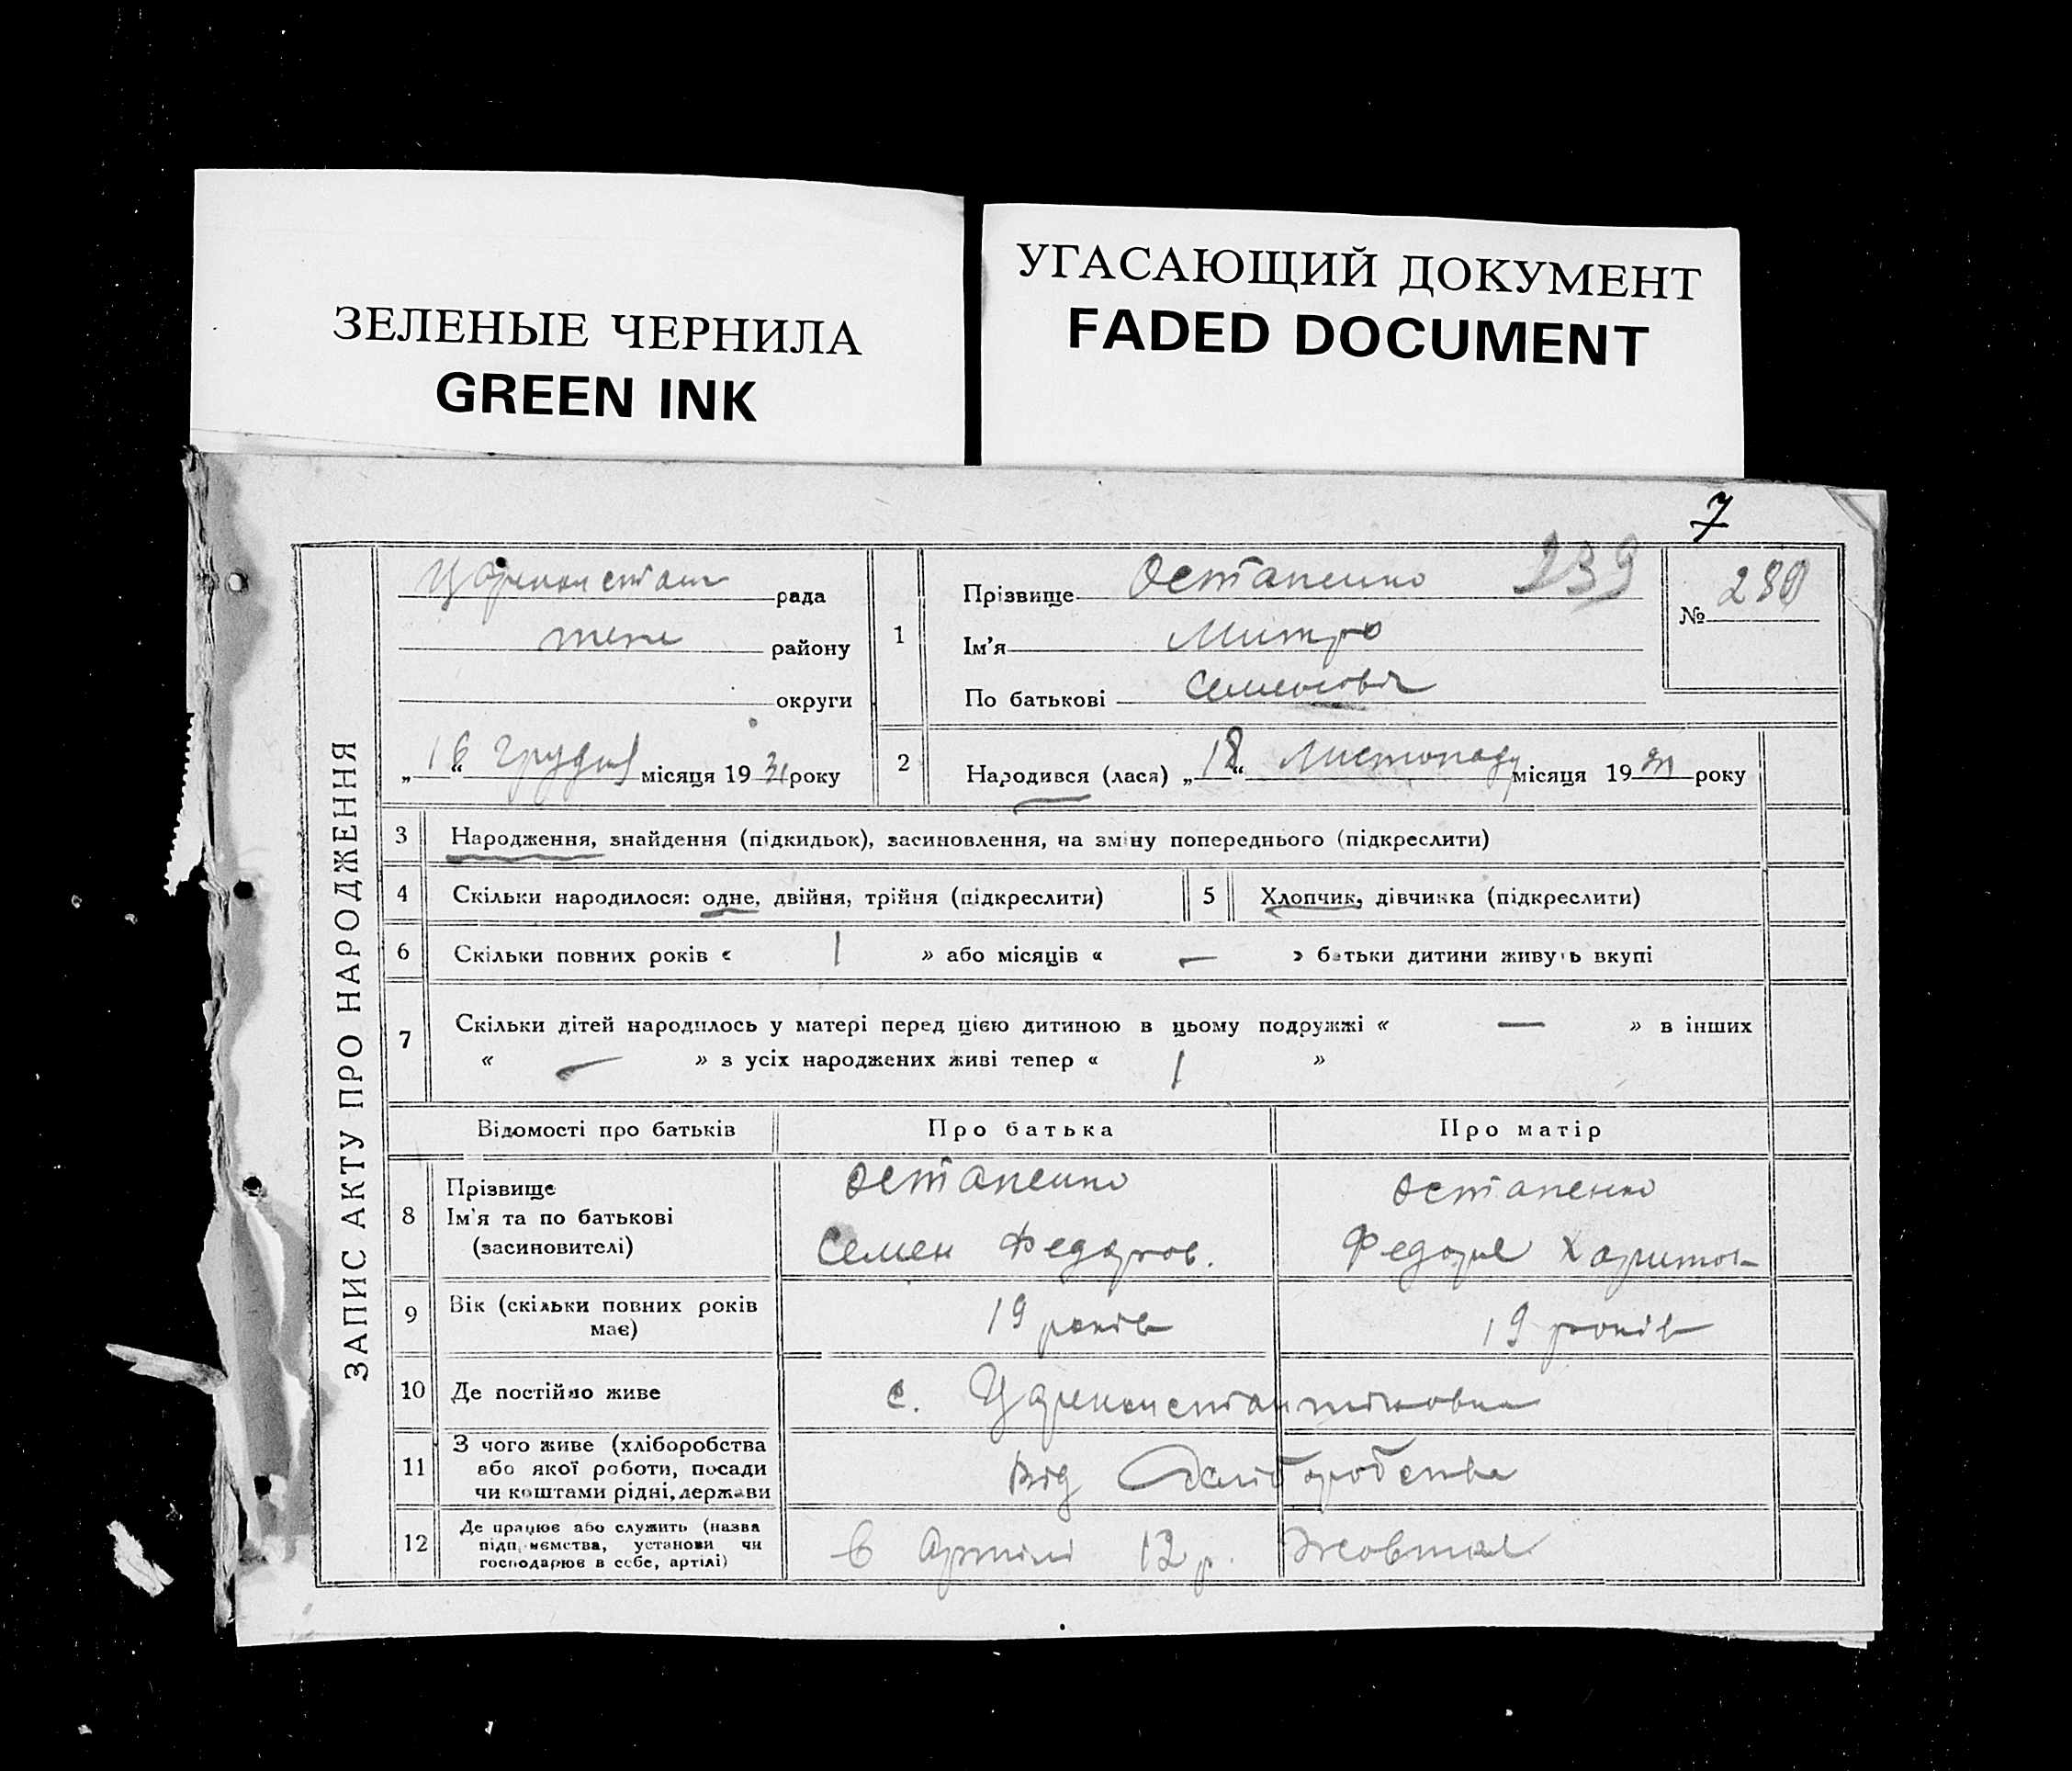 ЗЕЛЕНЫЕ ЧЕРНИЛА
GREEN INK
УГАСАЮЩИЙ ДОКУМЕНТ
FADED DOCUMENT
7
ЗАПИС АКТУ ПРО НАРОДЖЕННЯ
рада
району
округи
„16“ Грудня місяця 1931 року
1
Прізвище Остапенко 239
Ім'я Митро
По батькові Семенович
№ 230
2 Народився (лася) „18“ Листопаду місяця 1931 року
3 Народження, знайдення (підкидьок), засиновлення, на зміну попереднього (підкреслити)
4 Скільки народилося: одне, двійня, трійня (підкреслити) 5 Хлопчик, дівчинка (підкреслити)
6 Скільки повних років « 1 » або місяців « — » батьки дитини живуть вкупі
7 Скільки дітей народилось у матері перед цією дитиною в цьому подружжі « — » в інших
« — » з усіх народжених живі тепер « 1 »
Відомості про батьків Про батька Про матір
8 Прізвище
Ім'я та по батькові
(засиновителі)
Остапенко
Семен Федоров.
Остапенко
9 Вік (скільки повних років
має)
19 років 19 років
10 Де постійно живе с. Царекостантіновка
11 З чого живе (хліборобства
або якої роботи, посади
чи коштами рідні, держави
від
12 Де працює або служить (назва
підприємства, установи чи
господарює в себе, артілі)
в артілі 12 р. Жовтня